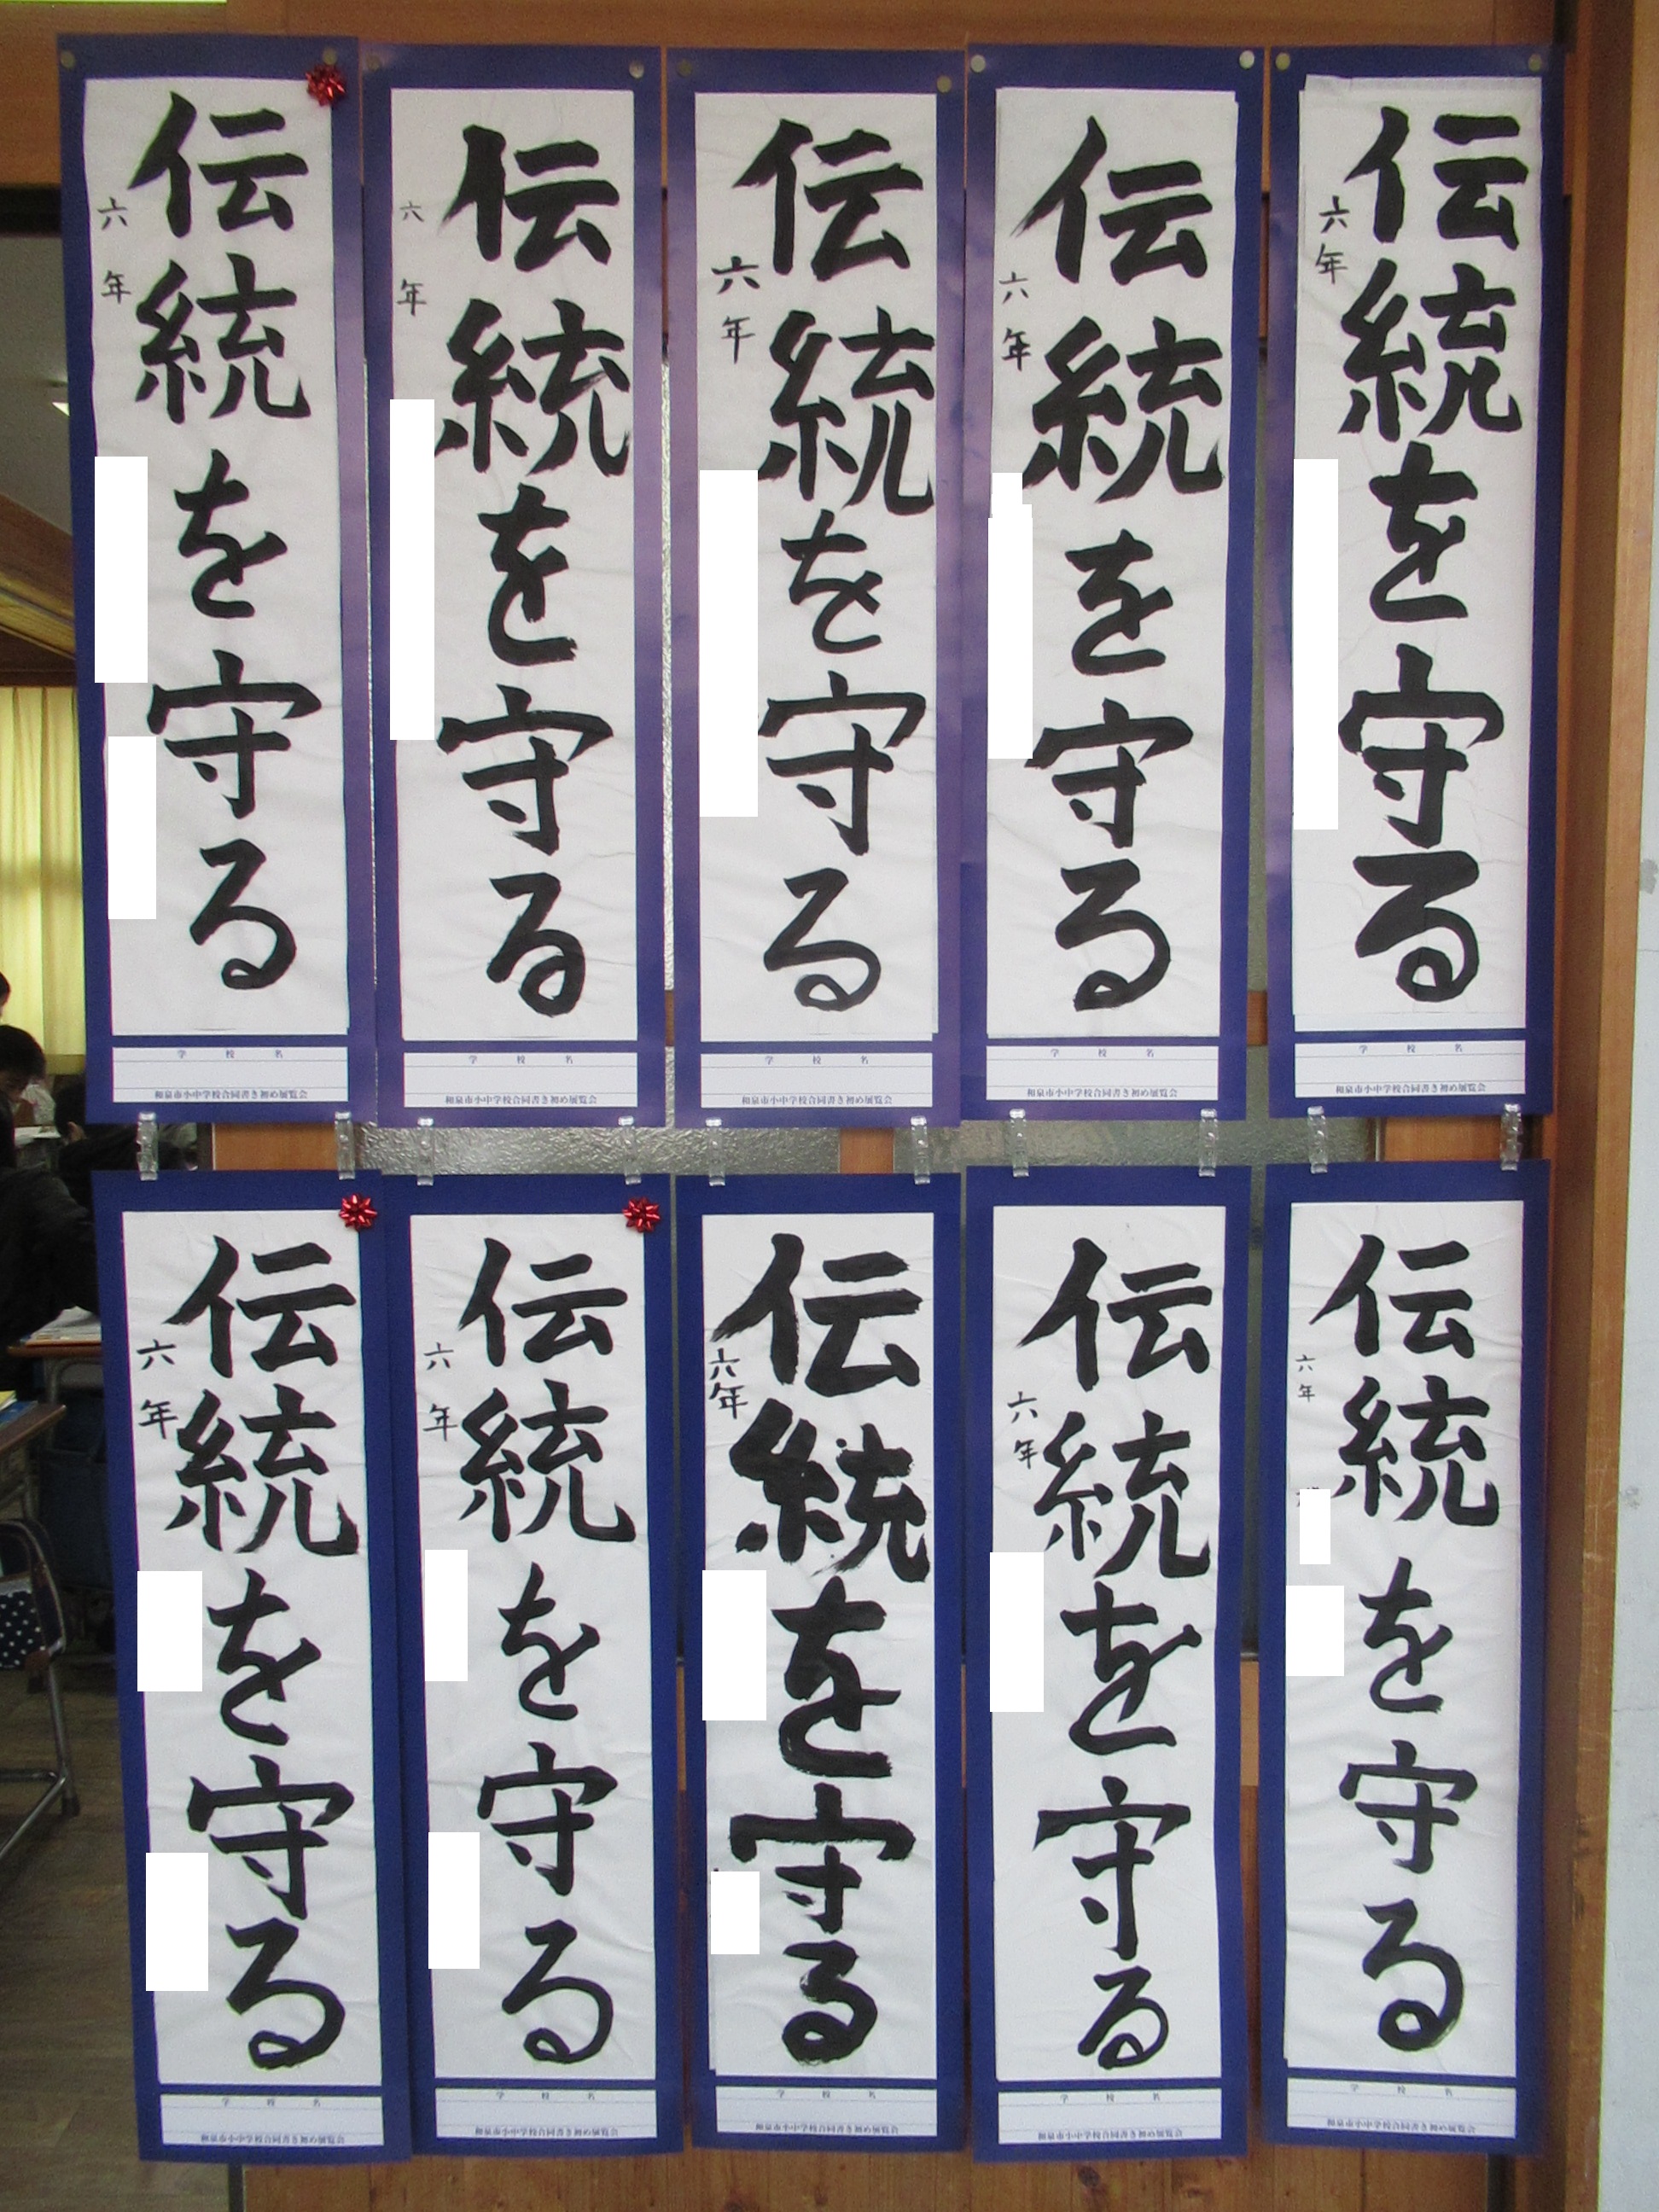 伝統を守る
六年
学校名
和泉市小中学校合同書き初め展覧会
伝統を守る
六年
学校名
和泉市小中学校合同書き初め展覧会
伝統を守る
六年
学校名
和泉市小中学校合同書き初め展覧会
伝統を守る
六年
学校名
和泉市小中学校合同書き初め展覧会
伝統を守る
六年
学校名
和泉市小中学校合同書き初め展覧会
伝統を守る
六年
学校名
和泉市小中学校合同書き初め展覧会
伝統を守る
六年
学校名
和泉市小中学校合同書き初め展覧会
伝統を守る
六年
学校名
和泉市小中学校合同書き初め展覧会
伝統を守る
六年
学校名
和泉市小中学校合同書き初め展覧会
伝統を守る
六年
学校名
和泉市小中学校合同書き初め展覧会